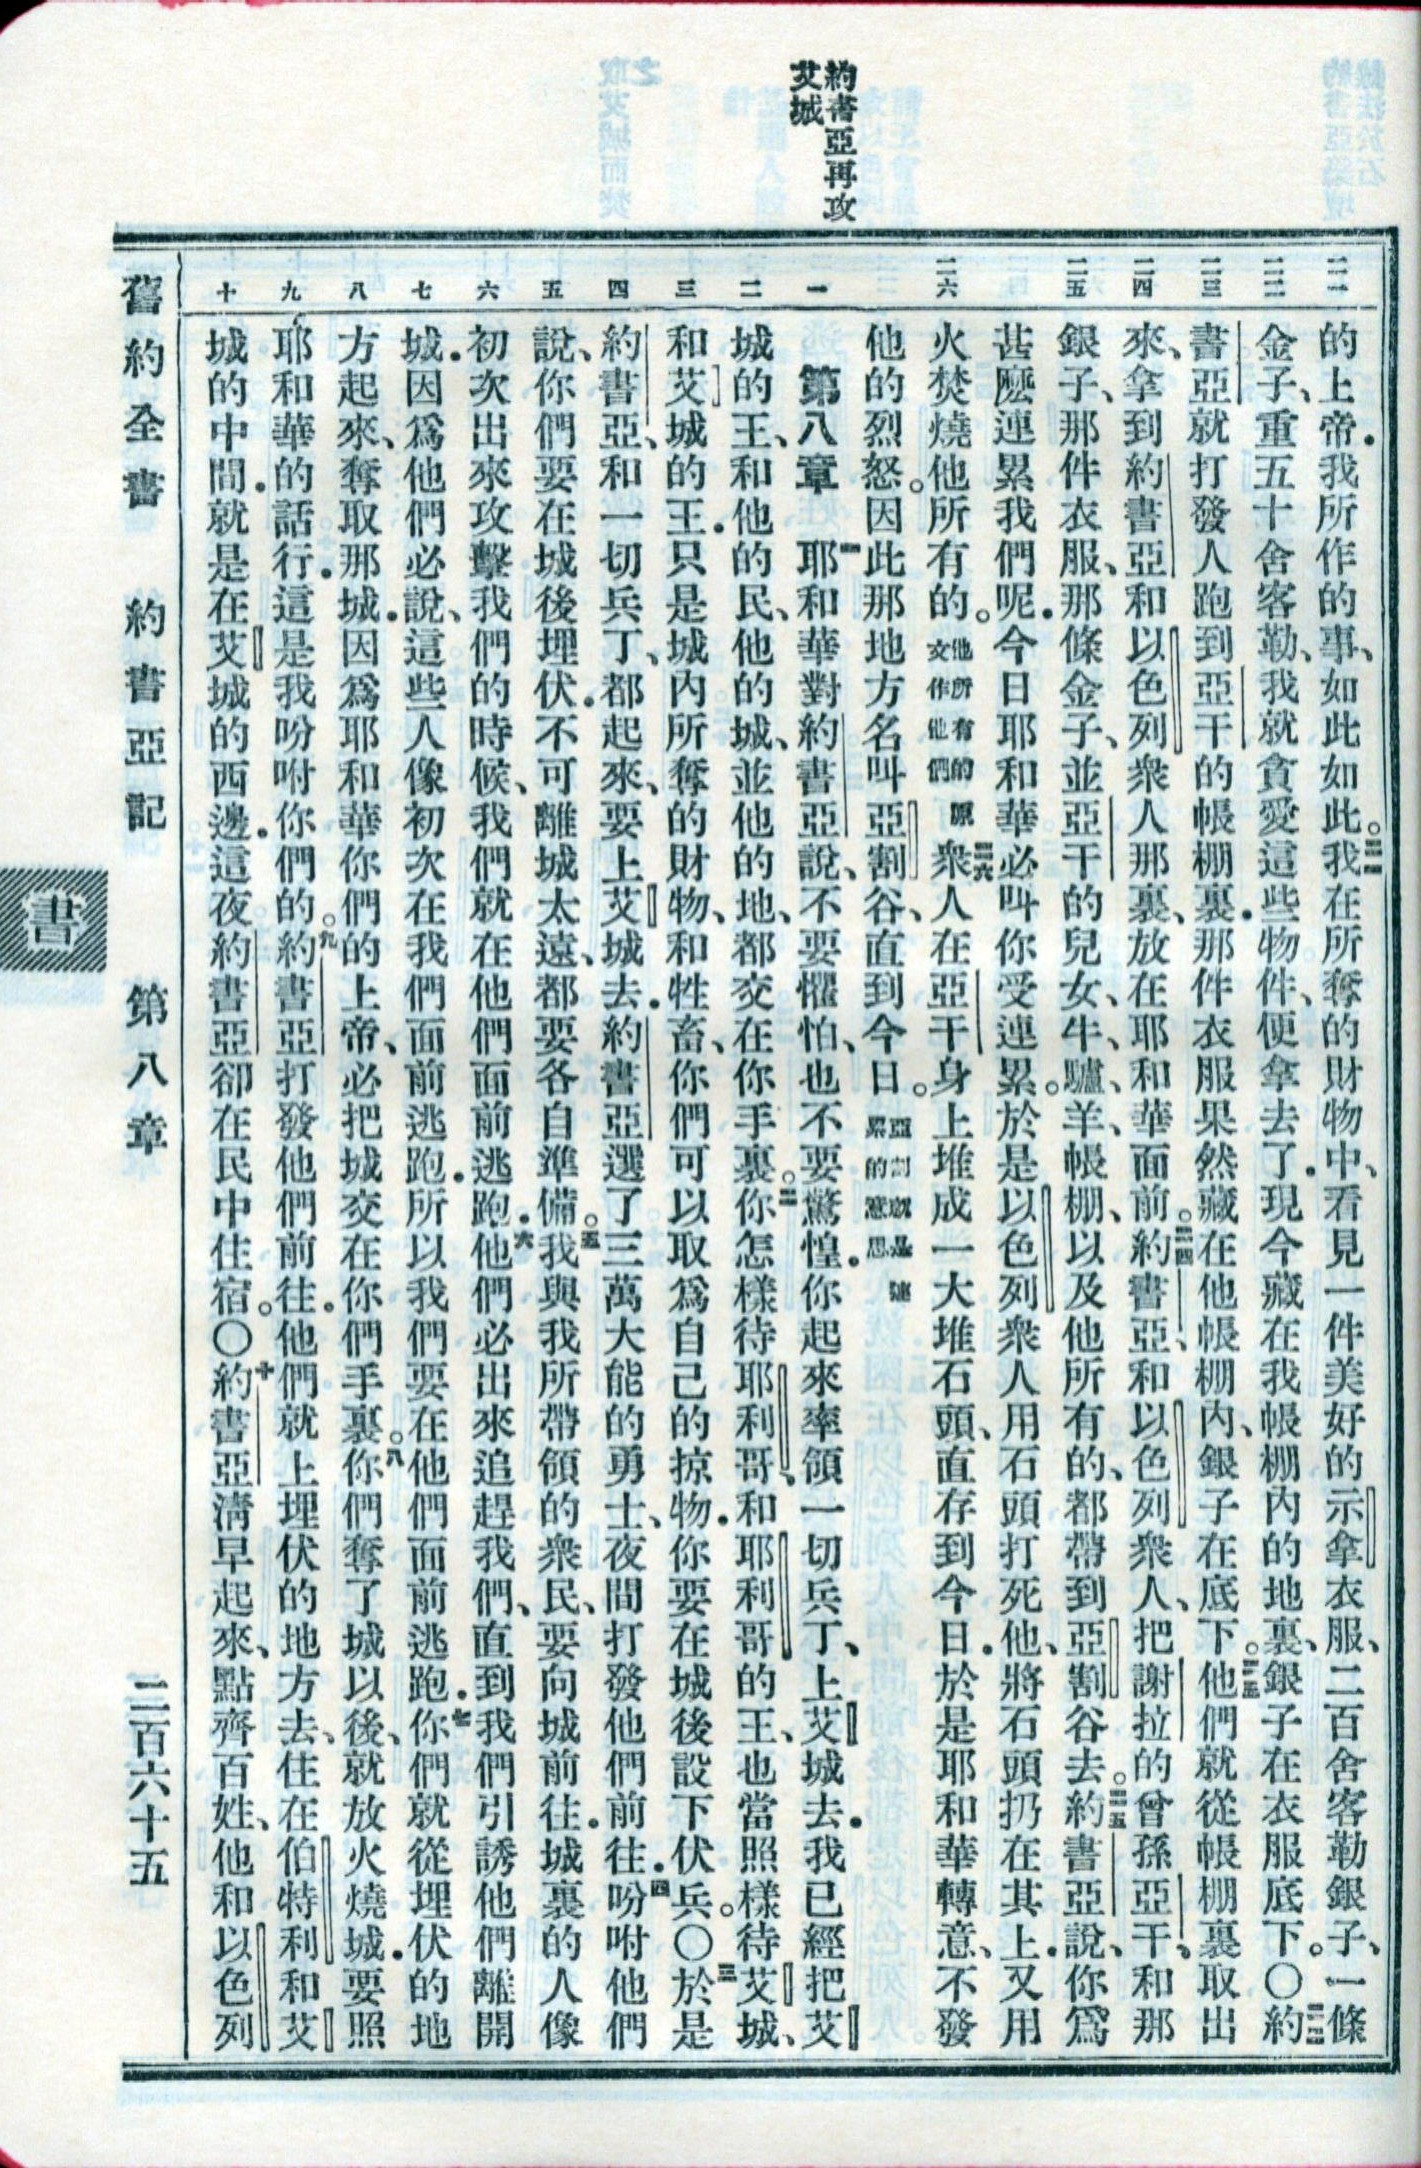 約書亞再攻
艾城
二一 的上帝．我所作的事、如此如此。二一我在所奪的財物中、看見一件美好的示拿衣服、二百舍客勒銀子、一條
二二 金子、重五十舍客勒、我就貪愛這些物件、便拿去了．現今藏在我帳棚內的地裏、銀子在衣服底下。〇二二約
二三 書亞就打發人跑到亞干的帳棚裏．那件衣服果然藏在他帳棚內、銀子在底下。二三他們就從帳棚裏取出
二四 來、拿到約書亞和以色列衆人那裏、放在耶和華面前。二四約書亞、和以色列衆人、把謝拉的曾孫亞干、和那
二五 銀子、那件衣服、那條金子、並亞干的兒女、牛、驢、羊、帳棚、以及他所有的、都帶到亞割谷去。二五約書亞說、你爲
甚麼連累我們呢．今日耶和華必叫你受連累。於是以色列衆人用石頭打死他、將石頭扔在其上．又用
二六 火焚燒他所有的。他所有的原文作他們二六衆人在亞干身上堆成一大堆石頭、直存到今日．於是耶和華轉意、不發
他的烈怒。因此那地方名叫亞割谷、直到今日。亞割就是連累的意思
一 第八章 一耶和華對約書亞說、不要懼怕、也不要驚惶．你起來率領一切兵丁、上艾城去．我已經把艾
二 城的王、和他的民、他的城、並他的地、都交在你手裏。二你怎樣待耶利哥、和耶利哥的王、也當照樣待艾城、
三 和艾城的王．只是城內所奪的財物、和牲畜、你們可以取爲自己的掠物．你要在城後設下伏兵。〇三於是
四 約書亞、和一切兵丁、都起來、要上艾城去．約書亞選了三萬大能的勇士、夜間打發他們前往．四吩咐他們
五 說、你們要在城後埋伏．不可離城太遠、都要各自準備。五我與我所帶領的衆民、要向城前往．城裏的人像
六 初次出來攻擊我們的時候、我們就在他們面前逃跑．六他們必出來追趕我們、直到我們引誘他們離開
七 城．因爲他們必說、這些人像初次在我們面前逃跑．所以我們要在他們面前逃跑．七你們就從埋伏的地
八 方起來、奪取那城．因爲耶和華你們的上帝、必把城交在你們手裏。八你們奪了城以後、就放火燒城．要照
九 耶和華的話行．這是我吩咐你們的。九約書亞打發他們前往．他們就上埋伏的地方去、住在伯特利和艾
十 城的中間．就是在艾城的西邊．這夜約書亞卻在民中住宿。〇十約書亞淸早起來、點齊百姓、他和以色列
舊約全書 約書亞記 第八章 二百六十五
書